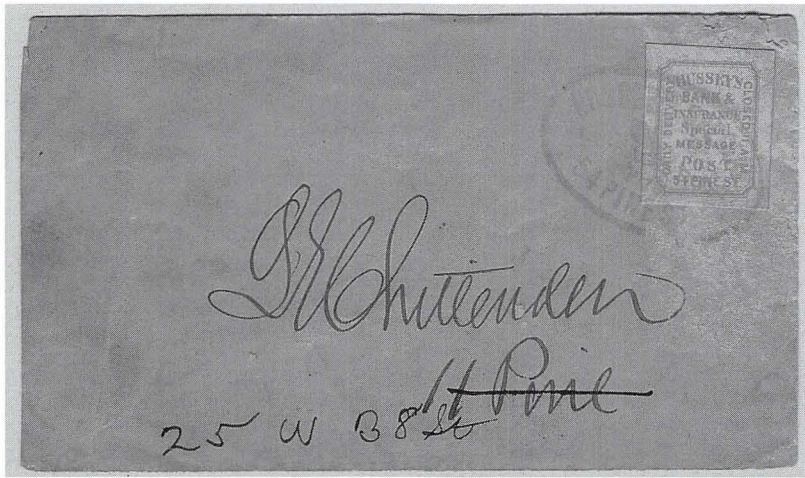 HUSSEY'S
BANK &
INSURANCE
Special
MESSAGE
POST
54 PINE ST.
54 PINE ST
Chittenden
Pine
25 W 38 St